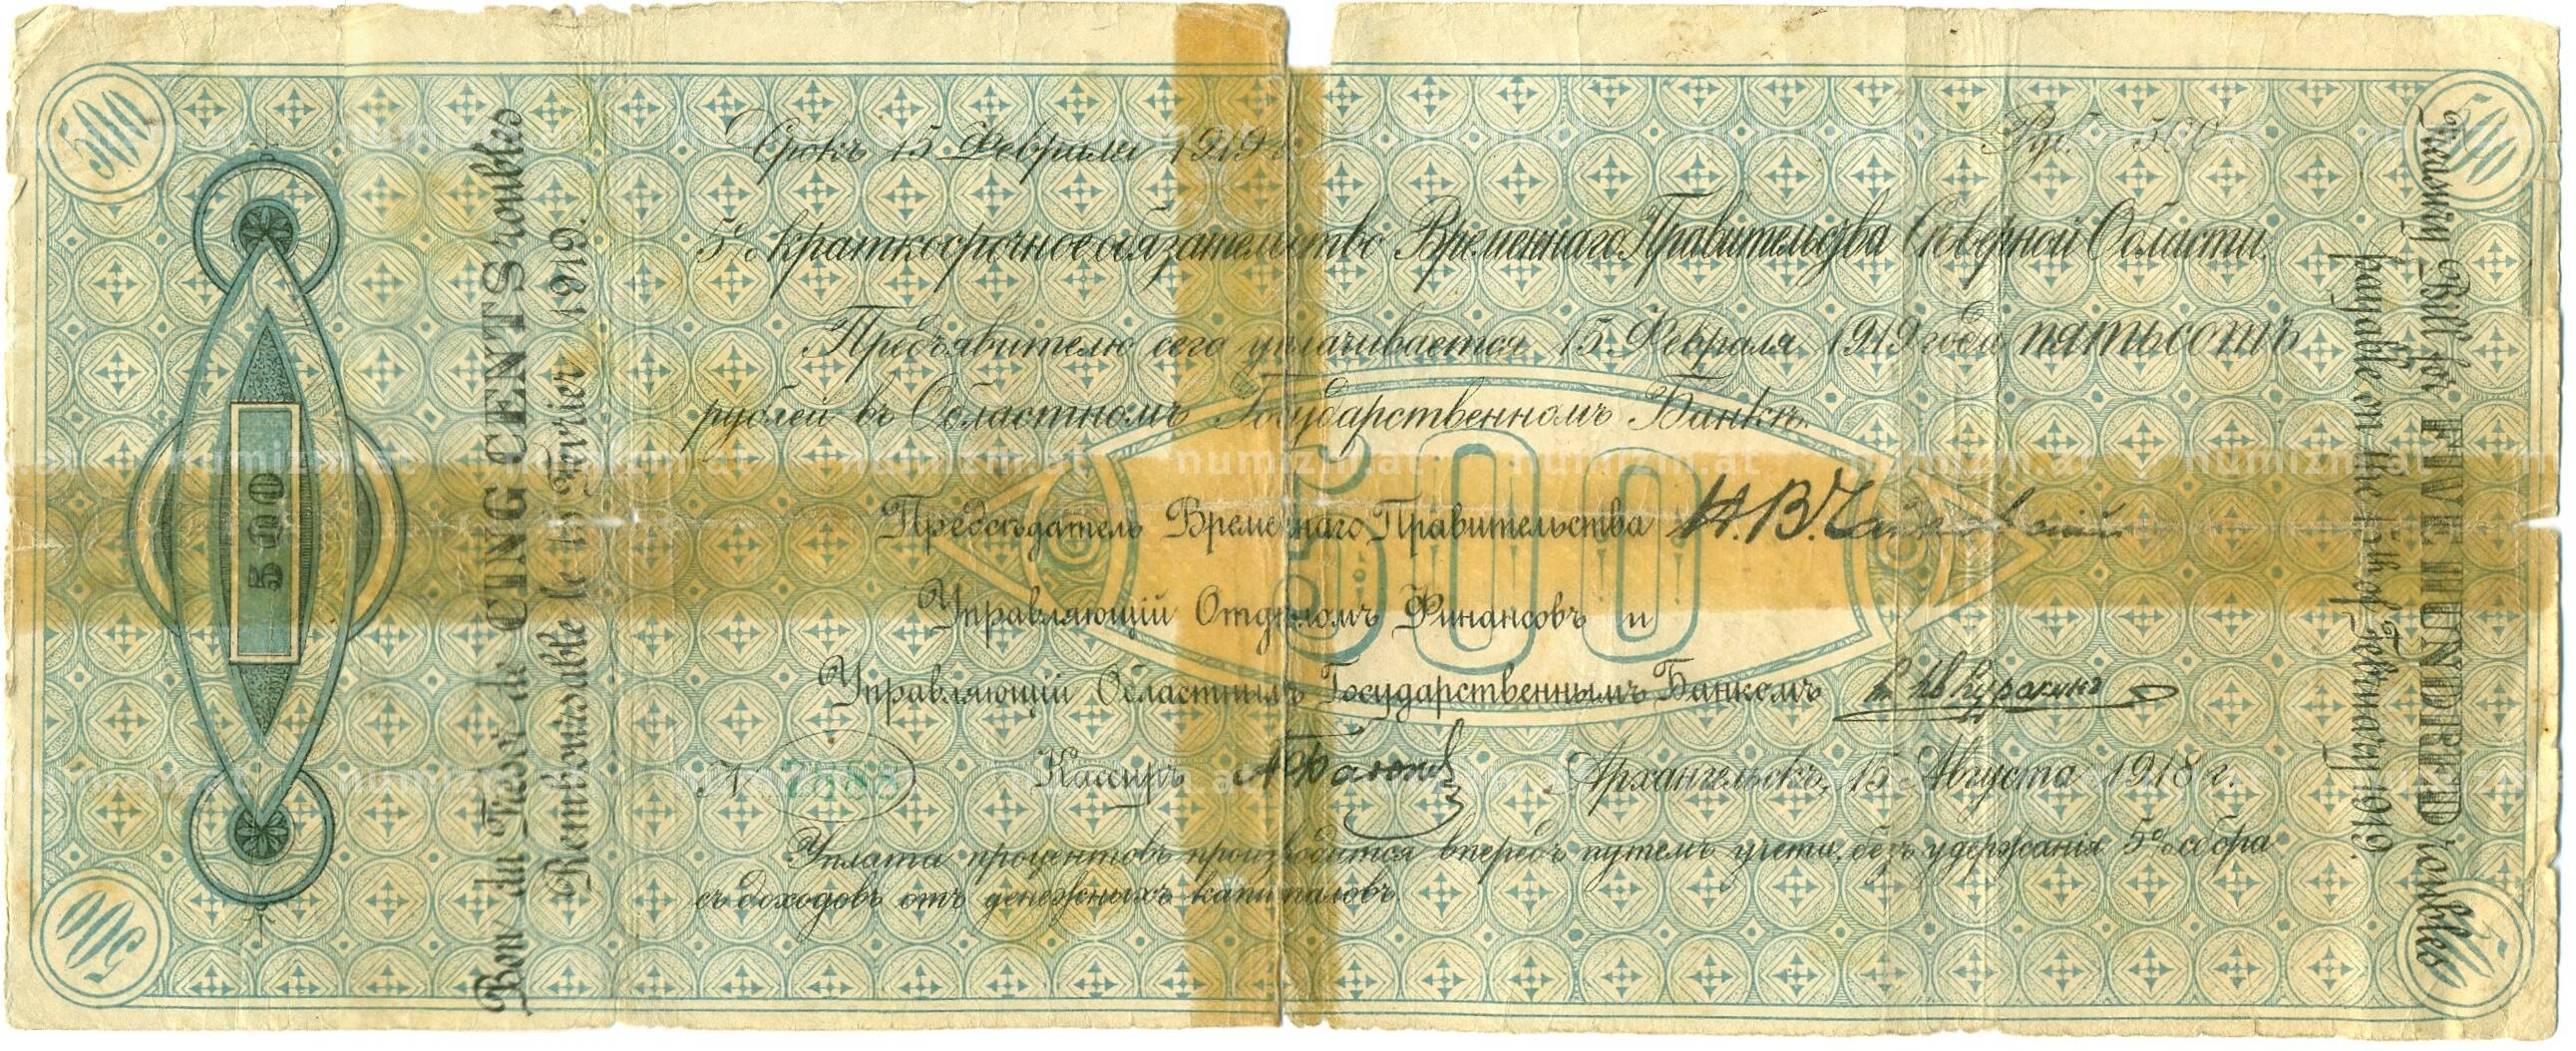 500
500
Срокъ 15 Февраля 1919 г.
Руб. 500
5% краткосрочное обязательство Временнаго Правительства Сѣверной Области.
Предъявителю сего уплачивается 15 Февраля 1919 года пятьсотъ
рублей въ Областномъ Государственномъ Банкѣ.
500
500
Предсѣдатель Временнаго Правительства Н.В.Чайковскій
Управляющій Отдѣломъ Финансовъ и
Управляющій Областнымъ Государственнымъ Банкомъ
№ 7588
Кассиръ
Архангельскъ, 15 Августа 1918 г.
Уплата процентовъ производится впередъ путемъ учета, безъ удержанія 5% сбора
съ доходовъ отъ денежныхъ капиталовъ.
500
500
Bon du Trésor de CINQ CENTS roubles
Remboursable le 15 Février 1919.
Treasury Bill for FIVE HUNDRED roubles
payable on the 15th of February 1919.
numizm.at